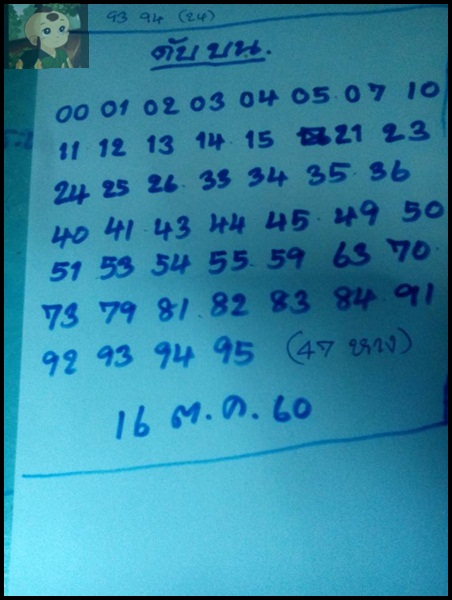 93 94 (24)
ดับบน.
00 01 02 03 04 05 07 10
11 12 13 14 15 21 23
24 25 26 33 34 35 36
40 41 43 44 45 49 50
51 53 54 55 59 63 70
73 79 81 82 83 84 91
92 93 94 95 (47 หาง)
16 ต.ค. 60